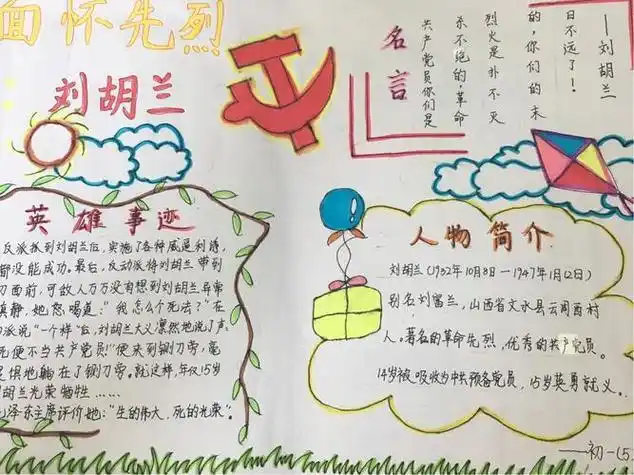 面怀先烈
刘胡兰
名言
共产党员你们是
杀不绝的,革命
烈火是扑不灭
的,你们的末
日不远了!
——刘胡兰
英雄事迹
反派抓到刘胡兰后,实施了各种威逼利诱,
都没能成功。最后,反动派将刘胡兰带到
刀面前,可敌人万万没有想到刘胡兰异常
镇静,她怒喝道:"我怎么个死法?"在
派说"一个样"后,刘胡兰大义凛然地说了声
死便不当共产党员!"便来到铡刀旁,毫
惧地躺在了铡刀旁。就这样,年仅15岁
胡兰光荣牺牲……
泽东主席评价她:"生的伟大,死的光荣"。
人物简介
刘胡兰(1932年10月8日—1947年1月12日)
别名刘富兰,山西省文水县云周西村
人。著名的革命先烈,优秀的共产党员。
14岁被吸收为中共预备党员,15岁英勇就义。
——初一(5